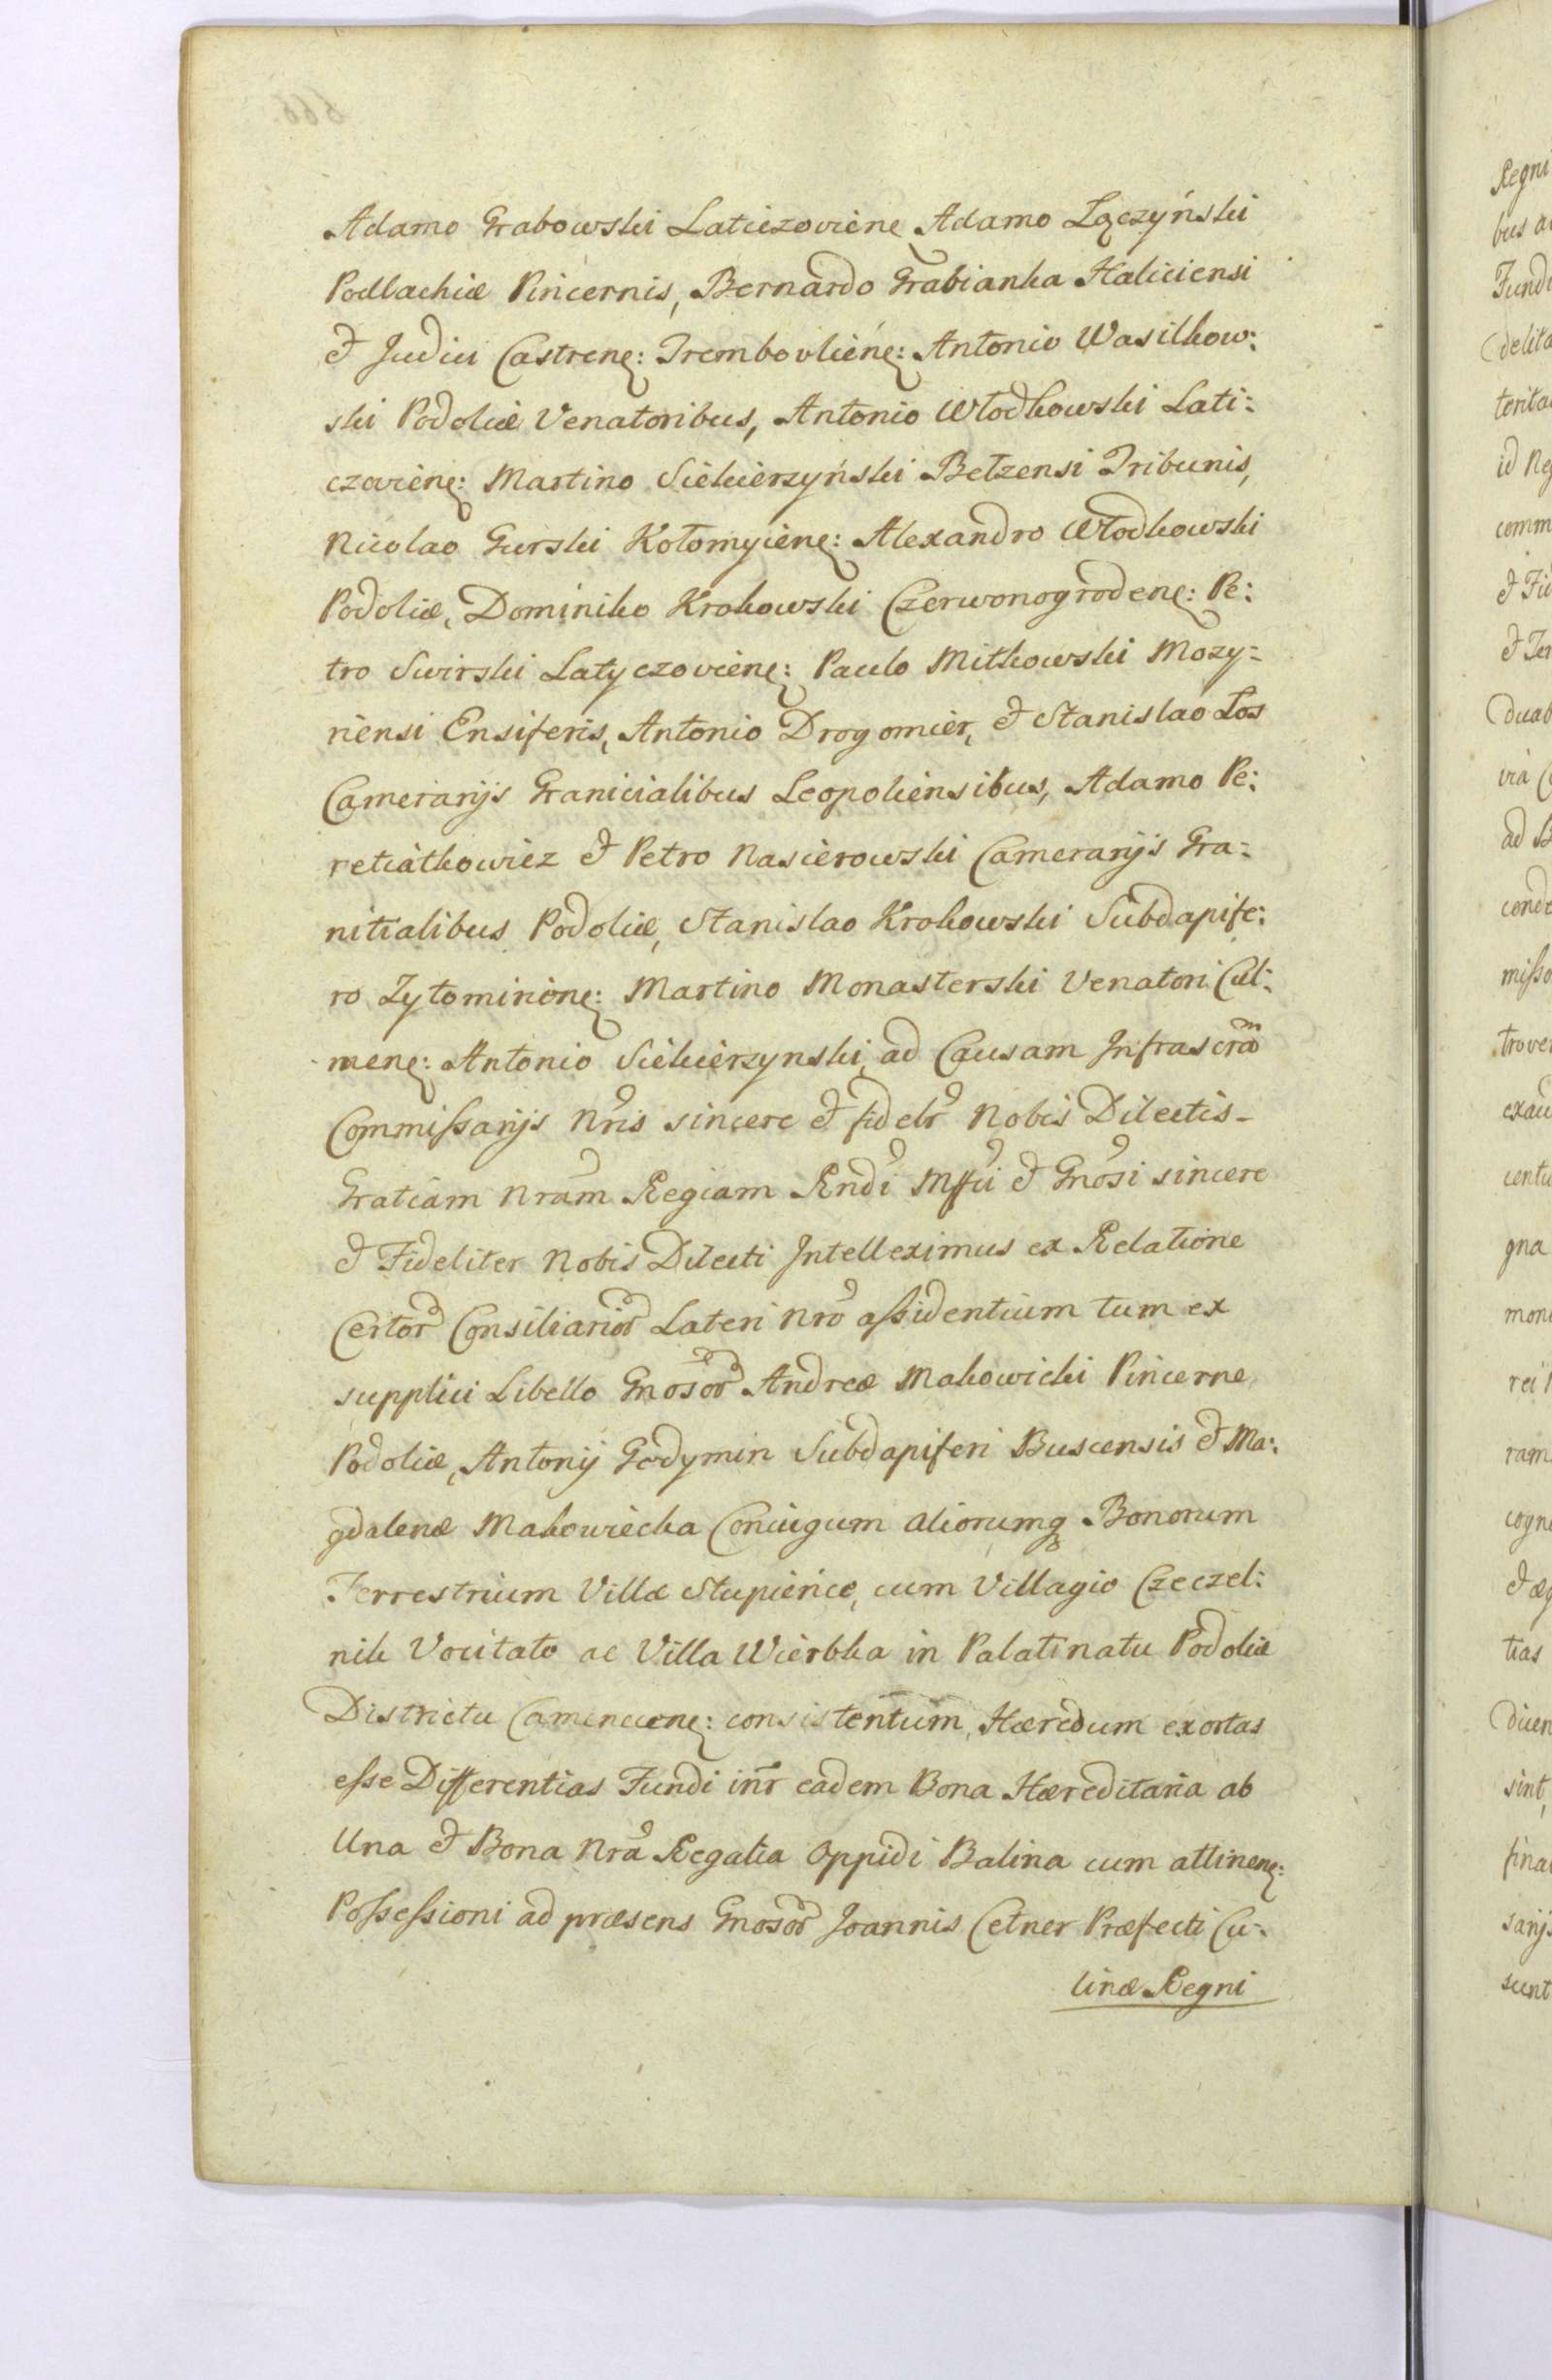 Adamo Grabowski Laticzoviens Adamo Łączyński
Podlachiæ Pincernis, Bernardo Grabianka Haliciensi
et Judici Castrens: Trembovliens: Antonio Wasilkow:
ski Podoliæ Venatoribus, Antonio Włodkowski Lati:
czoviens: Martino Siekierzyński Bełzensi Tribunis,
Nicolao Gurski Kołomyiens: Alexandro Włodkowski
Podoliæ, Dominiko Krokowski Czerwonogrodens: Pe:
tro Swirski Latyczoviens: Paulo Mitkowski Mozy:
riensi Ensiferis, Antonio Drogomier, et Stanislao Łos
Camerarijs Granicialibus Leopoliensibus, Adamo Pe:
retiatkowicz et Petro Nasierowski Camerarijs Gra:
nitialibus Podoliæ, Stanislao Krokowski Subdapife:
ro Zytomiriens: Martino Monasterski Venatori Cul:
mens: Antonio Siekierzynski, ad Causam Infrascram
Commissarijs Nris sincere et fidelr Nobis Dilectis-
Gratiam Nram Regiam Rndi Mffci et Gnosi sincere
et Fideliter Nobis Dilecti Intelleximus ex Relatione
Certor Consiliarior Lateri Nro assidentium tum ex
supplici Libello Gnosor Andreæ Makowicki Pincernæ
Podoliæ, Antonij Gedymin Subdapiferi Buscensis et Ma:
gdalenæ Makowiecka Conjugum aliorumq Bonorum
Terrestrium Villæ Stupience, cum Villagio Czeczel:
nik Vocitato ac Villa Wierbka in Palatinatu Podoliæ
Districtu Camenecens: consistentum, Hæredum exortas
esse Differentias Fundi inr eadem Bona Hæreditaria ab
Una et Bona Nra Regalia Oppidi Balina cum attinens:
Possessioni ad præsens Gnosor Joannis Cetner Præfecti Cu:
linæ Regni